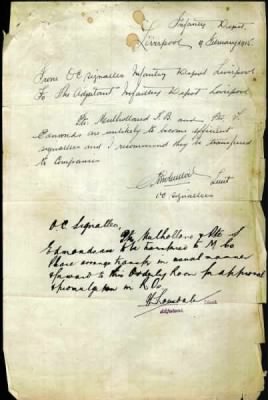 Infantry Depot,
Liverpool 9 February 1916.
From OC Signallers Infantry Depot Liverpool
To The Adjutant Infantry Depot Liverpool
Pte. Mulholland J.B. and Pte
Edmonds are unlikely to become efficient
signallers and I recommend they be transferred
to Companies
Lieut
OC Signallers
O.C. Signallers,
Pte Mulholland & Pte
Edmonds are to be transferred to M Co
Please arrange transfer in usual manner
& forward to this Orderly Room for approval
& promulgation in R.O.
Adjutant.